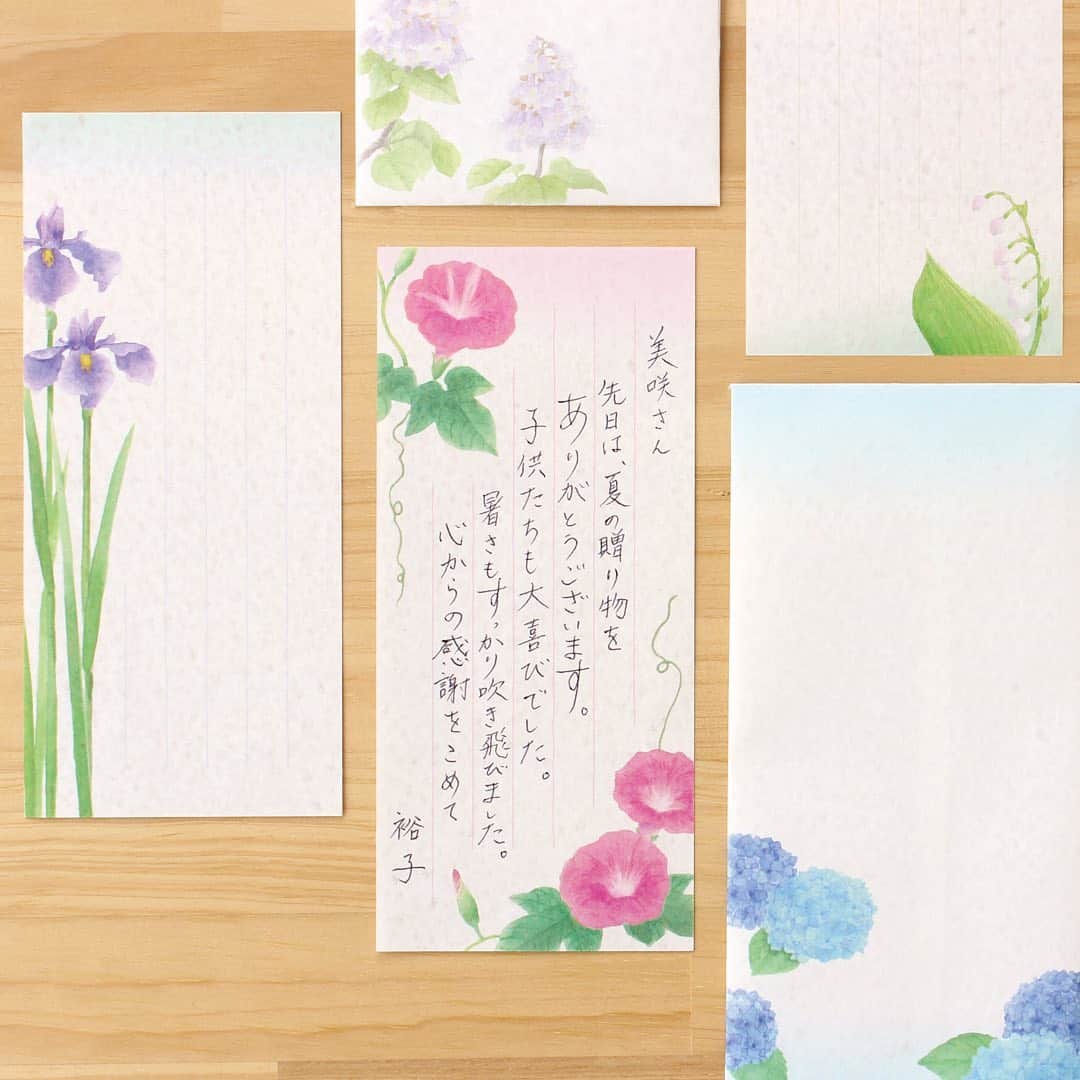 美咲さん
先日は、夏の贈り物を
ありがとうございます。
子供たちも大喜びでした。
暑さもすっかり吹き飛びました。
心からの感謝をこめて
裕子